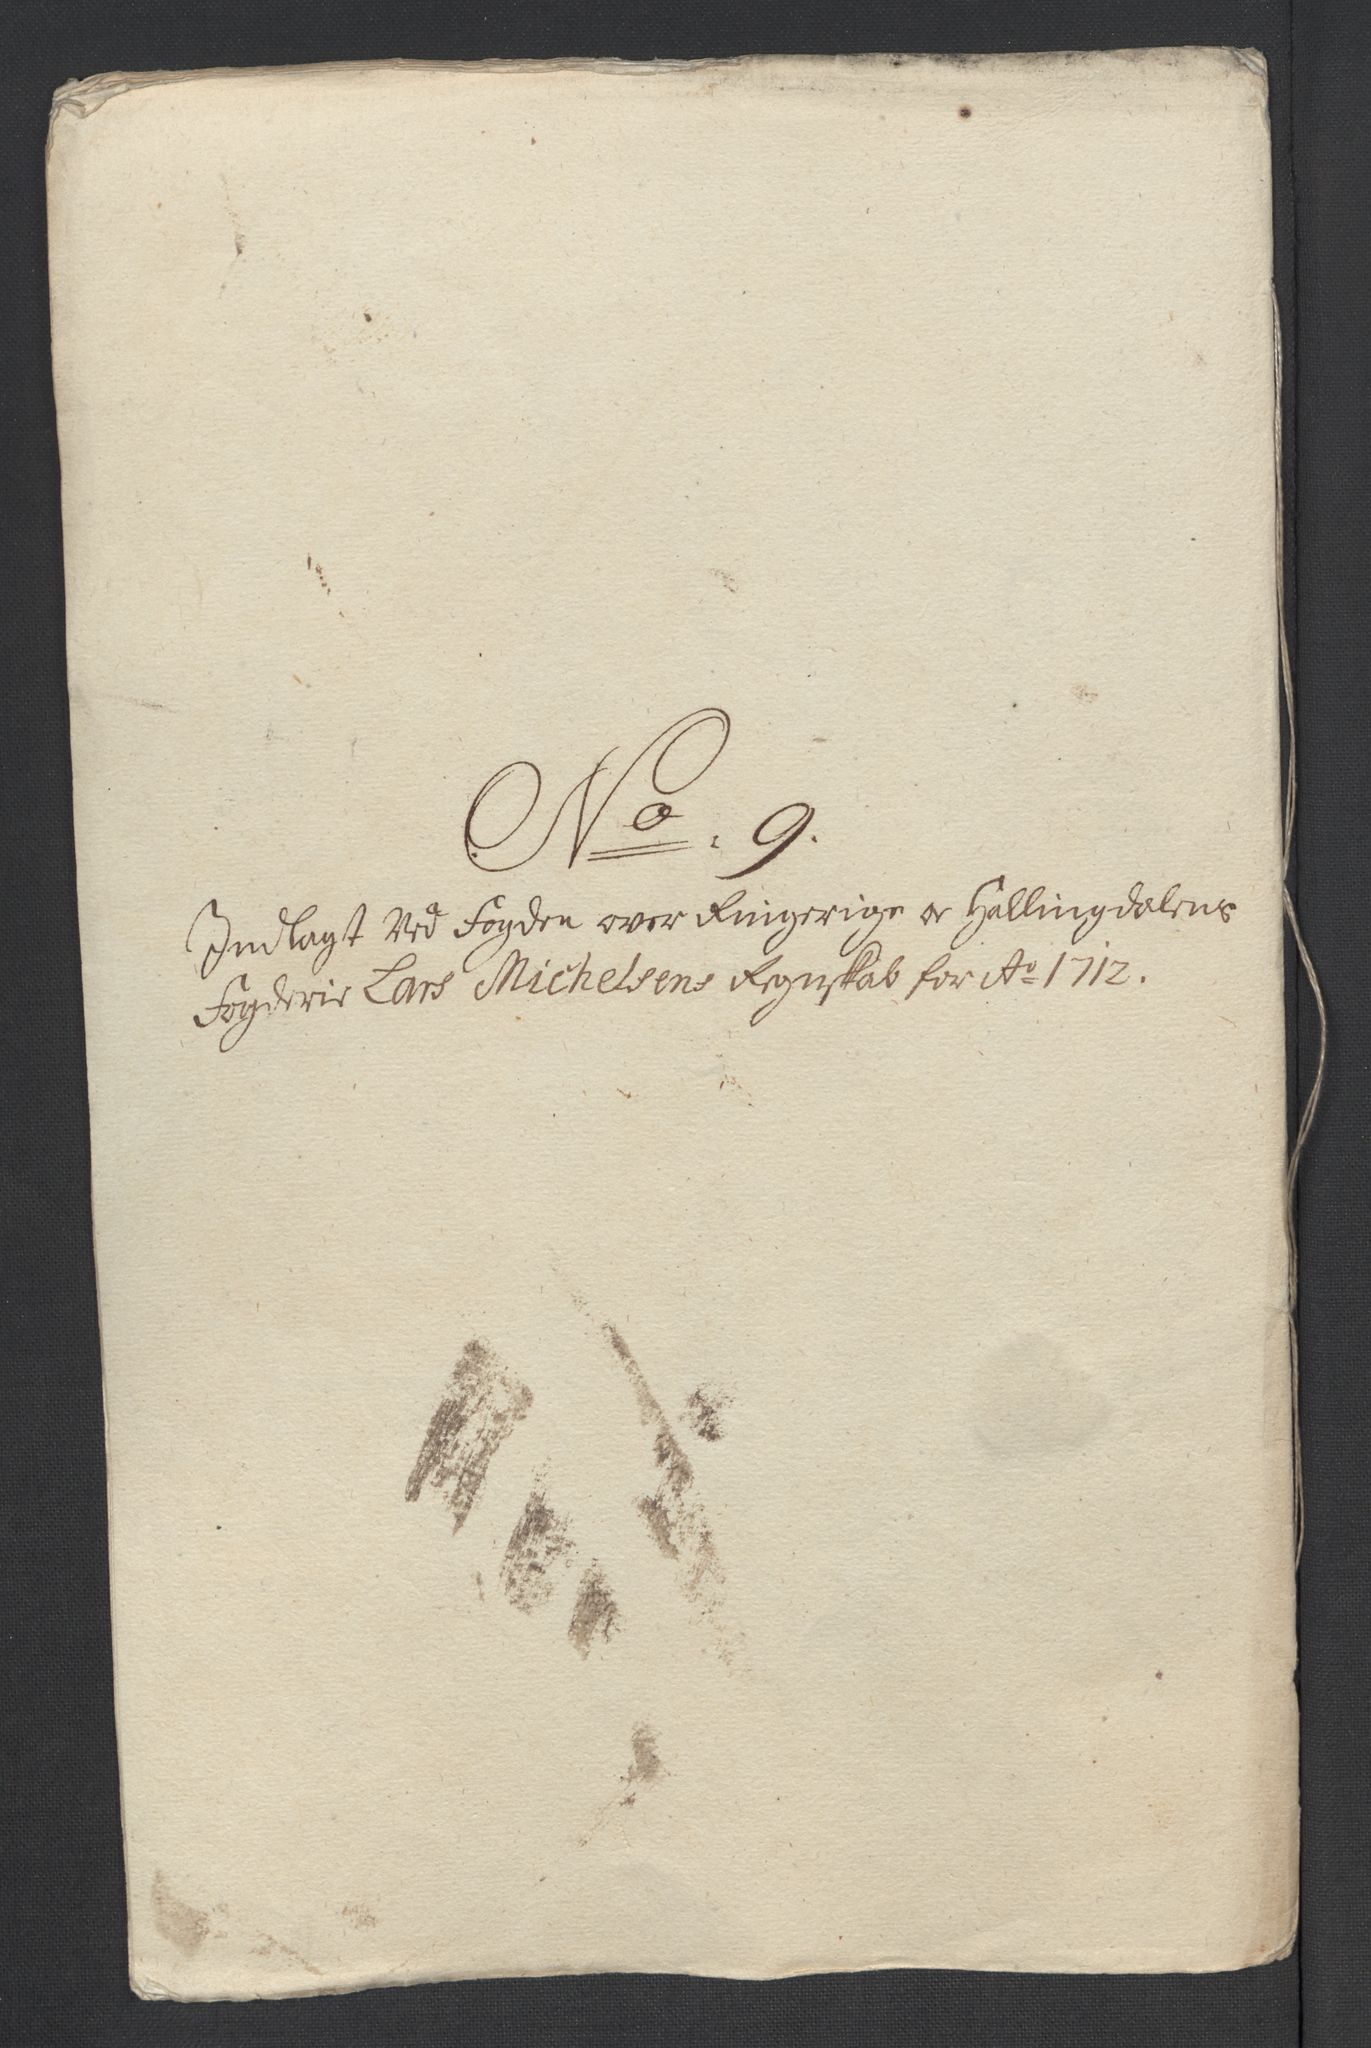 No. 9.
Indlagt Ved Fogden over Ringerige oc Hallingdalens
Fogderie Lars Michelsens Regnskab for Ao 1712.